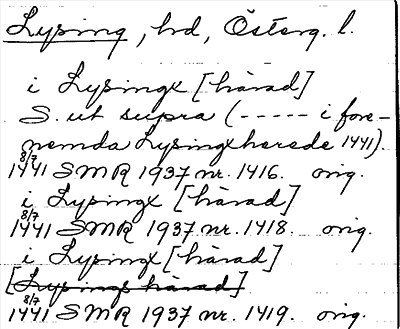 Lysing, hd, Österg. l.
i Lysingx [härad]
S. ut supra (----- i fore-
nemda Lysingxherede 1441).
8/7
1441 SMR 1937 nr. 1416. orig.
i Lysingx [härad]
8/7
1441 SMR 1937 nr. 1418. orig.
i Lysingx [härad]
[Lysings härad]
8/7
1441 SMR 1937 nr. 1419. orig.